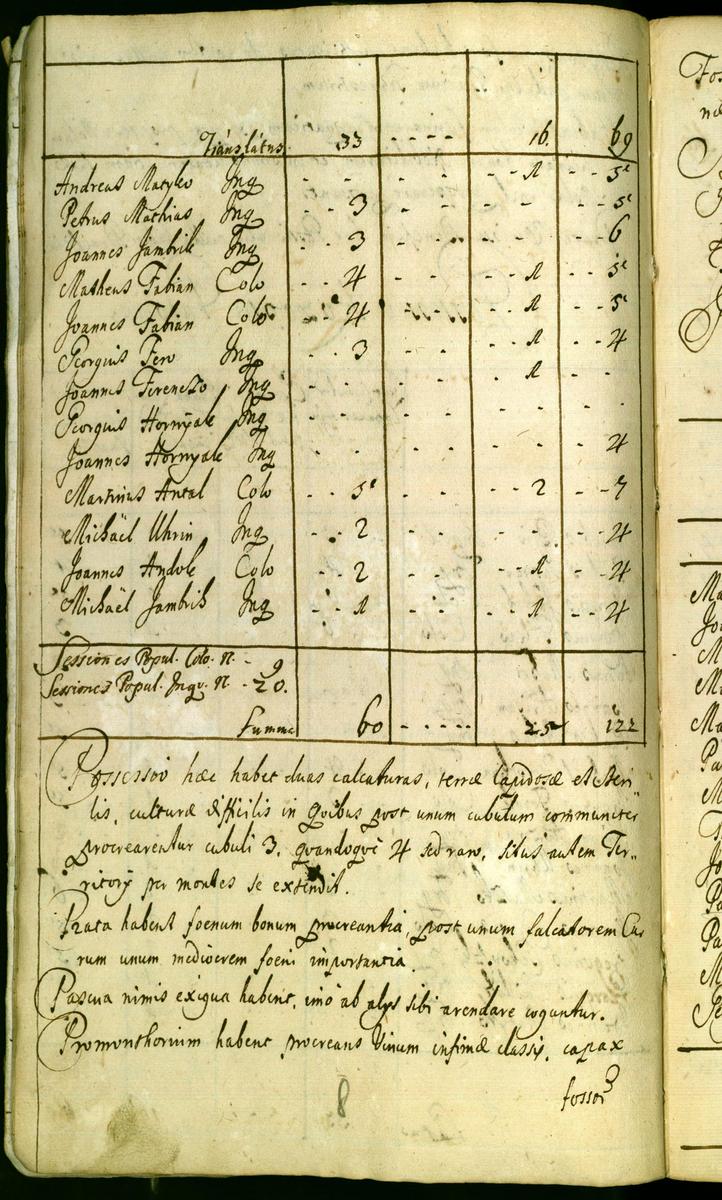 Translatus. 33 - - - - 16. 69
Andreas Matyko Inq - - - - - - 1 - - 5
Petrus Mathias Inq - - 3 - - - - - - 5
Joannes Jambrik Inq - - 3 - - - - - - 6
Matheus Fabian Colo - - 4 - - - - 1 - - 5
Joannes Fabian Colo - - 4 - - - - 1 - - 5
Georgius Fero Inq - - 3 - - - - 1 - - 4
Joannes Ferenczo Inq - - - - - - 1 - -
Georgius Hornyak Inq - - - - - - - -
Joannes Hornyak Inq - - - - - - - - 4
Martinus Antal Colo - - 5 - - - - 2 - - 7
Michaël Uhrin Inq - - 2 - - - - - - 4
Joannes Andok Colo - - 2 - - - - 1 - - 4
Michaël Jambrik Inq - - 1 - - - - 1 - - 4
Sessiones Popul. Colo. N. - 9
Sessiones Popul. Inqv. N - 20.
Summa 60 - - - - - 25 122
Possessio hæc habet duas calcaturas, terræ lapidosæ et steri„
lis, culturæ difficilis in quibus post unum cubulum communiter
procrearentur cubuli 3. quandoque 4 sed raro, situs autem Ter„
ritory per montes se extendit.
Prata habent foenum bonum procreantia, post unum falcatorem Cur
rum unum mediocrem foeni importantia.
Pascua nimis exigua habent, imo ab alys sibi arendare coguntur.
Promonthorium habent procreans Vinum infimæ classis, capax
fossor
8